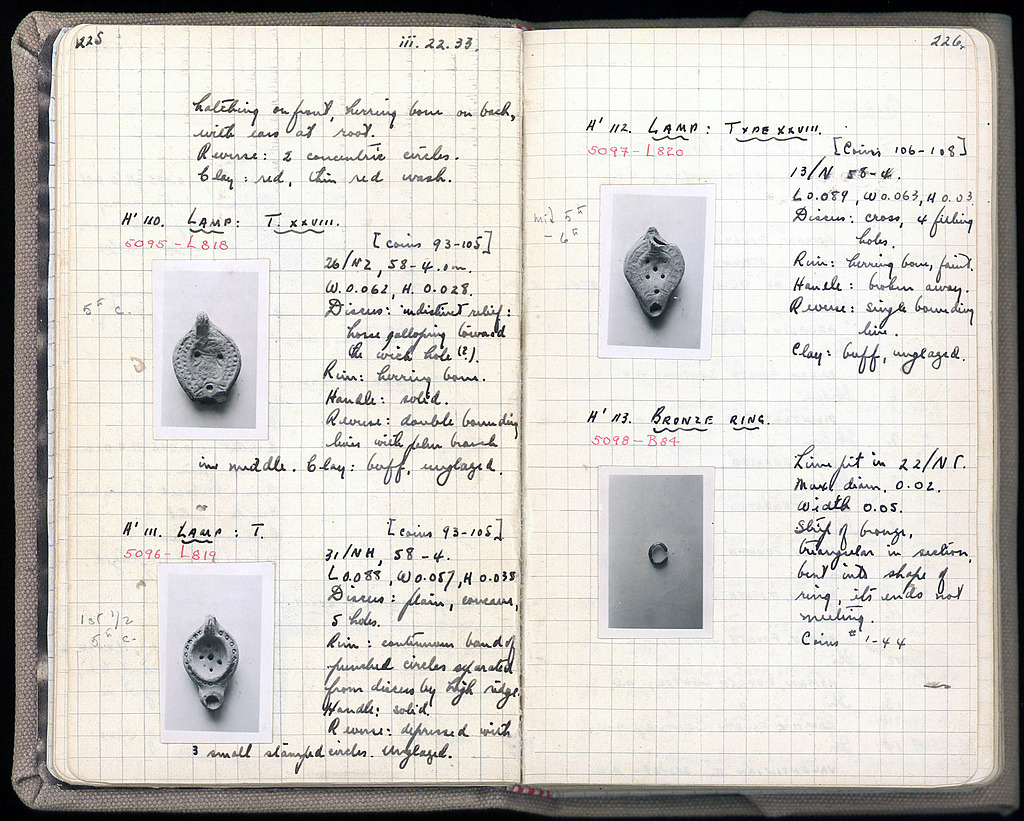 225
iii. 22. 33.
hatching on front, herring bone on back,
with ears at root.
Reverse: 2 concentric circles.
Clay: red, thin red wash.
H' 110. LAMP: T. XXVIII.
5095 - L818
[coins 93-105]
26/NZ, 58-4.0m.
W.0.062, H. 0.028.
5th c.
Discus: indistinct relief:
horse galloping toward
the wick hole (?).
Rim: herring bone.
Handle: solid.
Reverse: double bounding
lines with palm branch
in middle. Clay: buff, unglazed.
H' 111. LAMP: T.
5096 - L819
[coins 93-105]
31/NH, 58-4.
L 0.088, W 0.057, H 0.035
1st 1/2
5th c.
Discus: plain, concave,
5 holes.
Rim: continuous band of
punched circles separated
from discus by high ridge.
Handle: solid.
Reverse: depressed with
3 small stamped circles. Unglazed.
226.
H' 112. LAMP: TYPE XXVIII.
5097 - L820
[Coins 106-108]
13/N 58-4.
L 0.089, W 0.063, H 0.03
mid 5th
- 6th
Discus: cross, 4 filling
holes.
Rim: herring bone, faint.
Handle: broken away.
Reverse: single bounding
line.
Clay: buff, unglazed.
H' 113. BRONZE RING.
5098 - B84
Lime pit in 22/NΓ.
Max. diam. 0.02.
Width 0.05.
Strip of bronze,
triangular in section,
bent into shape of
ring, its ends not
meeting.
Coins # 1-44